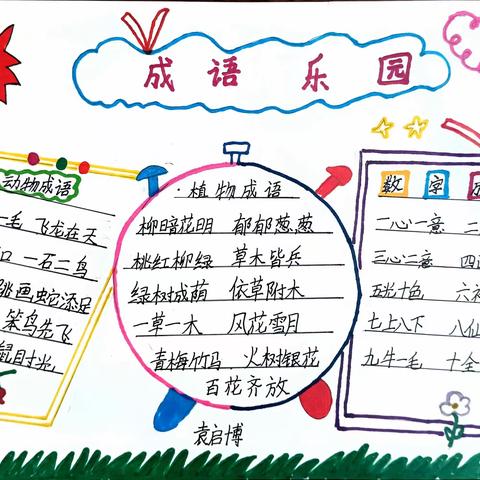 成语乐园
动物成语
一毛 飞龙在天
口 一石二鸟
跳 画蛇添足
笨鸟先飞
鼠目寸光
·植物成语
柳暗花明 郁郁葱葱
桃红柳绿 草木皆兵
绿树成荫 依草附木
一草一木 风花雪月
青梅竹马 火树银花
百花齐放
袁启博
数字
一心一意 二
三心二意 四
五光十色 六
七上八下 八仙
九牛一毛 十全